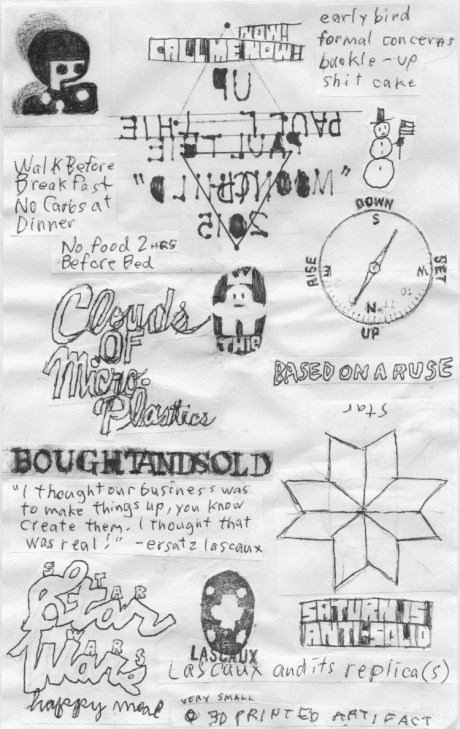 NOWN
CALL ME NOWN
UP
early bird
formal concerns
buckle-up
shit cake
PAUL THIE
"MOONCHILD"
2015
Walk Before
Breakfast
No Carbs at
Dinner
No food 2 HRS
Before Bed
DOWN
S
RISE
E
W
SET
N
UP
Clouds
OF
Micro-
Plastics
THIP
BASED ON A RUSE
star
BOUGHTANDSOLD
"I thought our business was
to make things up, you know
create them. I thought that
was real!" -ersatz lascaux
STAR
Star
WARS
Wars
happy meal
LASCAUX
SATURN IS
ANTI-SOLID
Lascaux and its replica(s)
VERY SMALL
3D PRINTED ARTIFACT